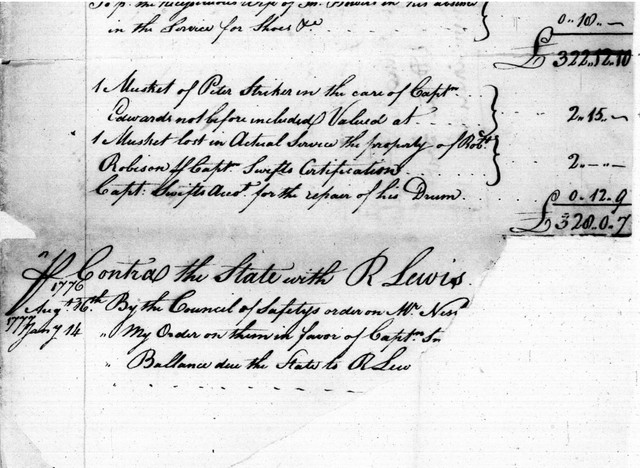 To p. the Necessitous Wife of Jn. Flowers in his absence
in the Service for Shoes &c 0..18..—
£322..12..10
1 Musket of Peter Striker in the care of Captn.
Edwards not before included Valued at 2..15..—
1 Musket lost in Actual Service the property of Robt.
Robison pr Captn. Swifts Certification 2..—..—
Capt: Swifts Acct. for the repair of his Drum 0..12..9
£328..0..7
Contra the State with R Lewis
1776
Augt. 26th. By the Council of Safetys order on Mr.
1777
Jany 14 " My Order on them in favor of Captn.
" Ballance due the State to R Lew